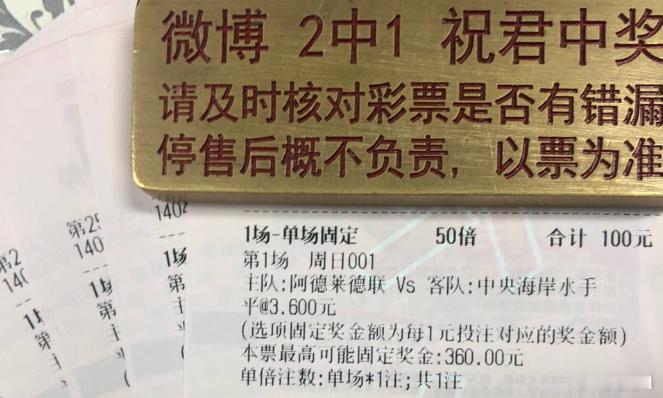 微博 2中1 祝君中奖
请及时核对彩票是否有错漏
停售后概不负责,以票为准
1场-单场固定 50倍 合计 100元
第1场 周日001
主队:阿德莱德联 Vs 客队:中央海岸水手
平@3.600元
(选项固定奖金额为每1元投注对应的奖金额)
本票最高可能固定奖金:360.00元
单倍注数:单场*1注;共1注
第2
140
1场
第
主
第25
140
1场
第
主
1402
1场
第
主